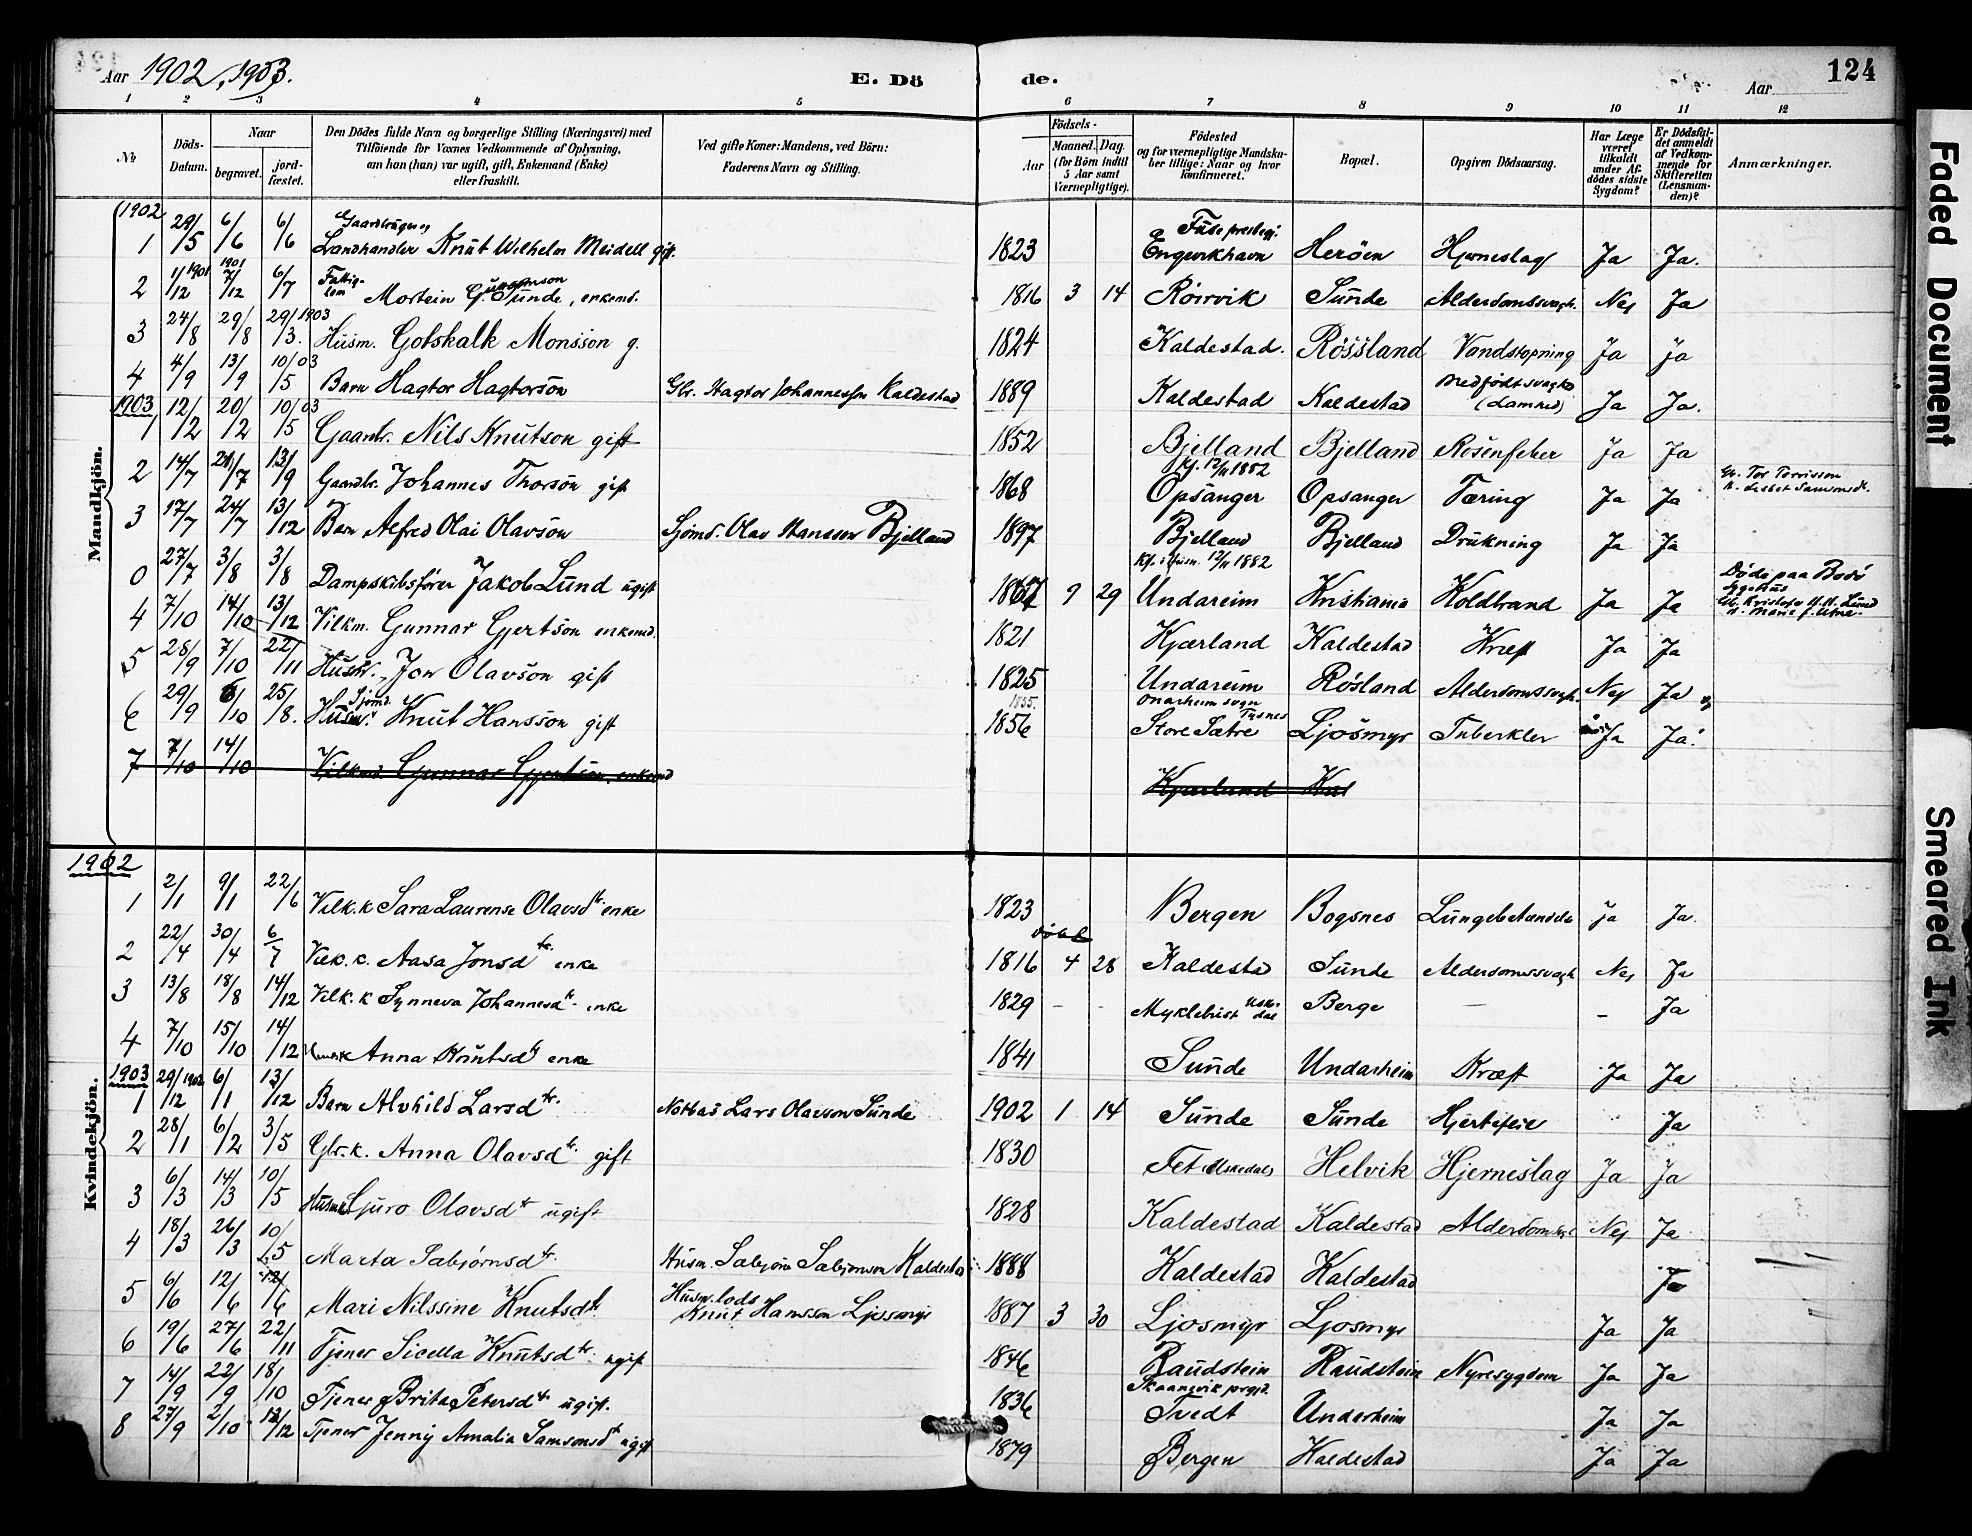 Aar 1902, 1903.
E. Dö
de.
Aar
124
1 2 3 4 5 6 7 8 9 10 11 12
No
Döds-Datum.
Naar
begravet.
jord-fæstet.
Den Dödes fulde Navn og borgerlige Stilling (Næringsvei) med
Tilföiende for Voxnes Vedkommende af Oplysning,
om han (hun) var ugift, gift, Enkemand (Enke)
eller fraskilt.
Ved gifte Koner: Mandens, ved Börn:
Faderens Navn og Stilling.
Födsels-
Aar
Maaned. Dag.
(for Börn indtil
5 Aar samt
Værnepligtige).
Födested
og for værnepligtige Mandskaber tillige: Naar og hvor
konfirmeret.
Bopæl.
Opgiven Dödsaarsag.
Har Læge
været
tilkaldt
under Afdödes sidste
Sygdom?
Er Dödsfaldet anmeldt
af Vedkommende for
Skifteretten
(Lensmanden)?
Anmærkninger.
Mandkjön.
1902
1 29/5 6/6 6/6 Gaardbruger og Landhandler Knut Wilhelm Meidell gift. 1823 Fuse prestegj. Engevikhavn Heröen Hjerneslag Ja Ja.
2 1/12 1901 7/12 1901 6/7 Fattiglem Mostein G. Sunde, enkemd. 1816 3 14 Röirvik Sunde Alderdomssvagh. Nej Ja
3 24/8 29/8 29/3. 1903 Husm. Gotskalk Monsson g. 1824 Kaldestad. Rössland Vandstopning Ja Ja
4 4/9 13/9 10/5 03 Barn Hagtor Hagtorson Gbr. Hagtor Johannesson Kaldestad 1889 Kaldestad Kaldestad Medfödt svagh. (Lamhed) Ja Ja.
1903
1 12/2 20/2 10/5 03 Gaardbr. Nils Knutson gift 1852 Bjelland Bjelland Rosenfeber Ja Ja
2 14/7 21/7 13/9 Gaardbr. Johannes Thorson gift 1868 kf. 12/11 1882 Opsanger Opsanger Tæring Ja Ja Gbr. Tor Torrisson k. Lisbet Samsonsdt.
3 17/7 24/7 13/12 Barn Alfred Olai Olavson Sjömd. Olav Hansson Bjelland 1897 Bjelland Bjelland Drukning Ja Ja
0 27/7 3/8 3/8 Dampskibsförer Jakob Lund ugift 1867 9 29 12/11 1882 Undareim Kristiania Koldbrand Ja Ja Döde paa Bodö Sygehus
4 7/10 14/10 13/12 Vilkm. Gunnar Gjertson enkemd. 1821 Kjærland Kaldestad Kræft Ja Ja
5 28/9 7/10 22/11 Husm., Jon Olavson gift 1825 Undareim Rösland Alderdomssvagh. Nej Ja
6 29/9 6/10 25/8. Sjömd. Husm. Knut Hansson gift 1855. 1856 Onarheim sogn Tysnes Store Sætre Ljosmyr Tuberkler Ja Ja.
7 7/10 14/10 Vilkmd Gunnar Gjertson, enkemd Kjærland Kal
Kvindekjön.
1902
1 2/1 9/1 22/6 Vilk.k Sara Laurense Olavsdtr. enke 1823 Bergen Bogsnes Lungebetændelse Ja Ja.
2 22/4 30/4 6/7 Vilk. k. Aasa Jonsdtr. enke 1816 4 28 Kaldestad Sunde Alderdomssvagh Nej Ja
3 13/8 18/8 14/12 Vilk. k Synneva Johannesdtr. enke 1829 - - Myklebust Uskedal Berge - - Ja
4 7/10 15/10 14/12 Anna Knutsdtr enke 1841 Sunde Undarheim Kræft Ja Ja
1903
1 29/12 1902 6/1 13/12 Barn Alvhild Larsdtr. Notbas Lars Olavson Sunde 1902 1 14 Sunde Sunde Hjertefeil Ja
2 28/1 6/2 3/5 Gbr.k. Anna Olavsdtr. gift 1830 Fet Uskedal Helvik Hjerneslag Ja Ja
3 6/3 14/3 10/5 Guro Olavsdtr ugift 1828 Kaldestad Kaldestad Alderdom Nej Ja
4 18/3 26/3 10/5 Marta Sabjörnsdtr. Husm. Sabjörn Sabjörnson Kaldestad 1888 Kaldestad Kaldestad Ja
5 6/6 12/6 12/6 Mari Nilssine Knutsdtr. Husm. Knut Hansson Ljosmyr 1887 3 30 Ljosmyr Ljosmyr Ja Ja
6 19/6 27/6 22/11 Tjener Sicella Knutsdtr. ugift 1846 Raudstein Raudstein Nyresygdom Ja Ja
7 14/9 22/9 18/10 Tjener Brita Petersdtr ugift. 1836 Skaanevik prgjd. Tvedt Undarheim Ja Ja
8 27/9 2/10 13/12 Tjener Jenny Amalia Samsonsdt ugift 1879 Bergen Kaldestad Ja Ja
Faded Document
Smeared Ink